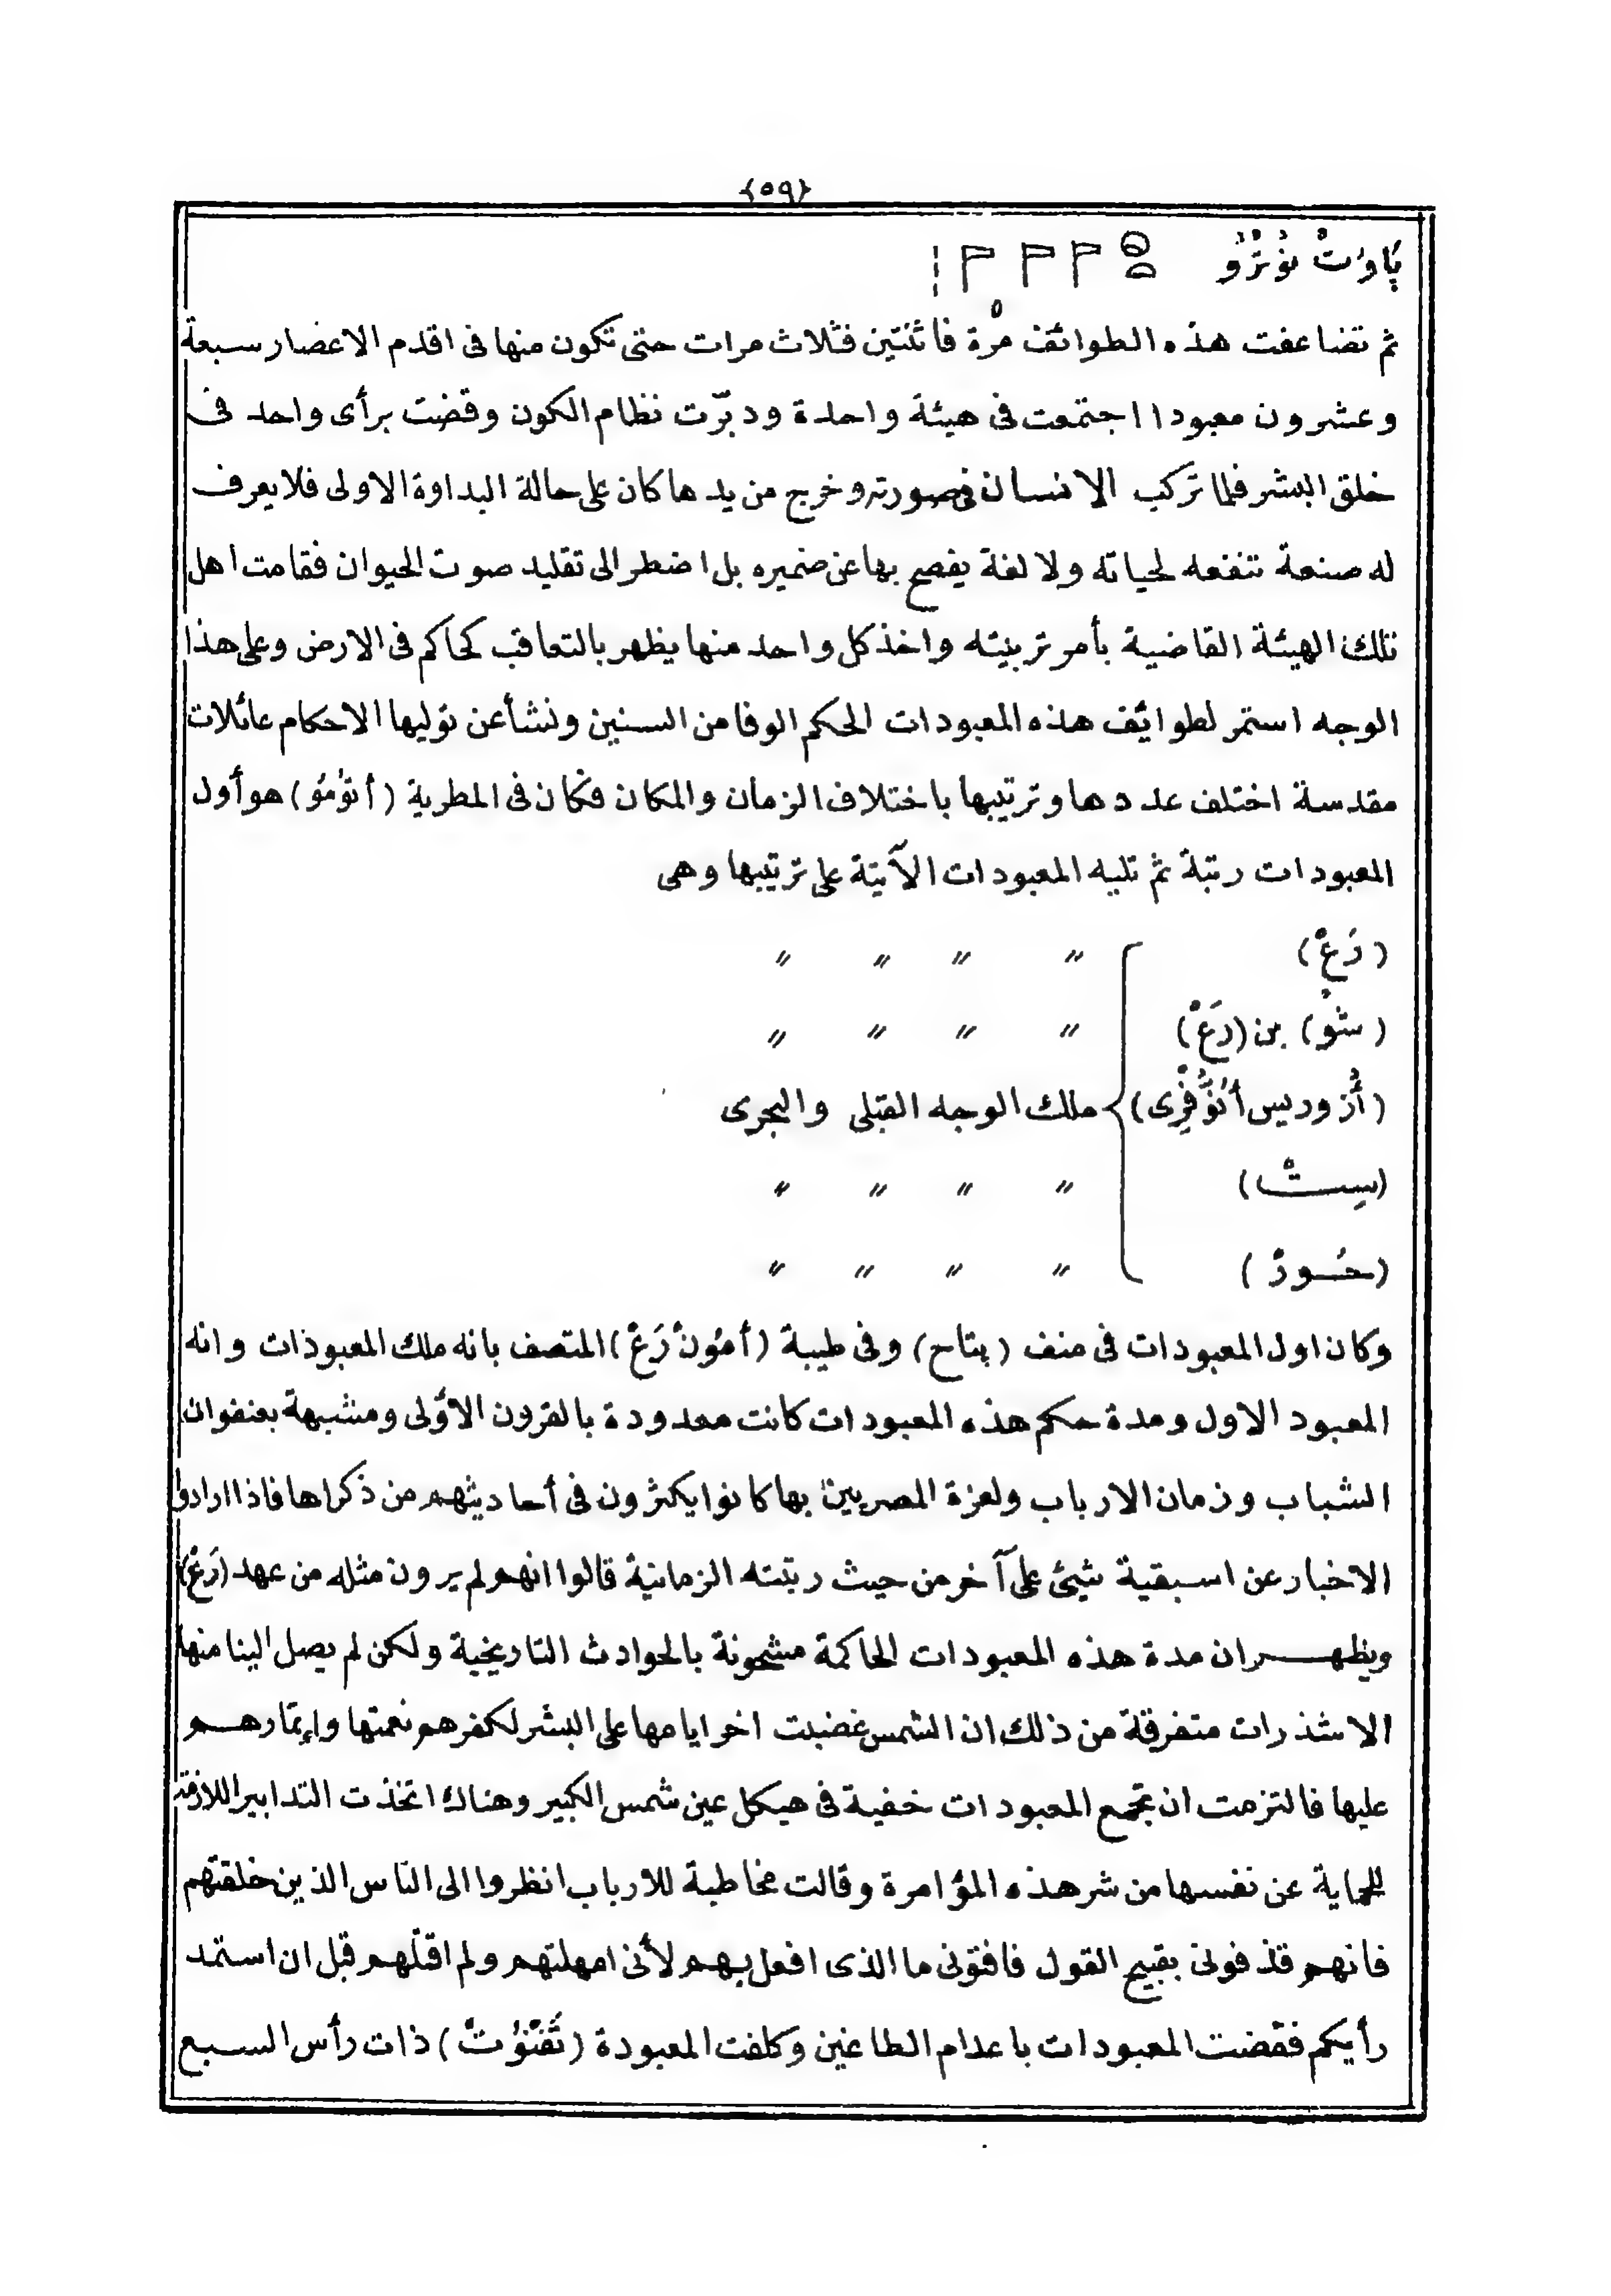 {٥٩}
پَاوُتْ نُوْتَرُو
ثم تضاعفت هذه الطوائف مرّة فاثنتين فثلاث مرات حتى تكون منها فى اقدم الاعصار سبعة
وعشرون معبودا اجتمعت فى هيئة واحدة ودبّرت نظام الكون وقضت برأى واحد فى
خلق البشر فلما تركب الانسان فى صورته وخرج من يدها كان على حالة البداوة الاولى فلا يعرف
له صنعة تنفعه لحياته ولا لغة يفصح بها عن ضميره بل اضطر الى تقليد صوت الحيوان فقامت اهل
تلك الهيئة القاضية بأمر تربيته واخذ كل واحد منها يظهر بالتعاقب كحاكم فى الارض وعلى هذا
الوجه استمر لطوائف هذه المعبودات الحكم الوفا من السنين ونشأ عن توليها الاحكام عائلات
مقدسة اختلف عددها وترتيبها باختلاف الزمان والمكان فكان فى المطرية (أتُوْمُو) هو أول
المعبودات رتبة ثم تليه المعبودات الآتية على ترتيبها وهى
(رَعْ) 〃 〃 〃 〃
(شُو) بن (رَعْ) 〃 〃 〃 〃
(أُزْوريس أُنُوْفِرْى) ملك الوجه القبلى والبحرى
(سِتْ) 〃 〃 〃 〃
(حُورْ) 〃 〃 〃 〃
وكان اول المعبودات فى منف (پتاح) وفى طيبة (أمُونْ رَعْ) المتصف بانه ملك المعبودات وانه
المعبود الاول ومدة حكم هذه المعبودات كانت معدودة بالقرون الأولى ومشبهة بعنفوان
الشباب وزمان الارباب ولعزة المصريين بها كانوا يكثرون فى أحاديثهم من ذكراها فاذا ارادوا
الاخبار عن اسبقية شيئ على آخر من حيث رتبته الزمانية قالوا انهم لم يرون مثله من عهد (رَعْ)
ويظهر ان مدة هذه المعبودات الحاكمة مشحونة بالحوادث التاريخية ولكن لم يصل الينا منها
الا شذرات متفرقة من ذلك ان الشمس غضبت اخر ايامها على البشر لكفرهم نعمتها وإتمارهم
عليها فالتزمت ان تجمع المعبودات خفية فى هيكل عين شمس الكبير وهناك اتخذت التدابير اللازمة
للحماية عن نفسها من شر هذه المؤامرة وقالت مخاطبة للارباب انظروا الى النّاس الذين خلقتهم
فانهم قذفونى بقبيح القول فافتونى ما الذى افعل بهم لأنى امهلتهم ولم اقتلهم قبل ان استمد
رأيكم فقضت المعبودات باعدام الطاغين وكلفت المعبودة (تَفْنُوتْ) ذات رأس السبع